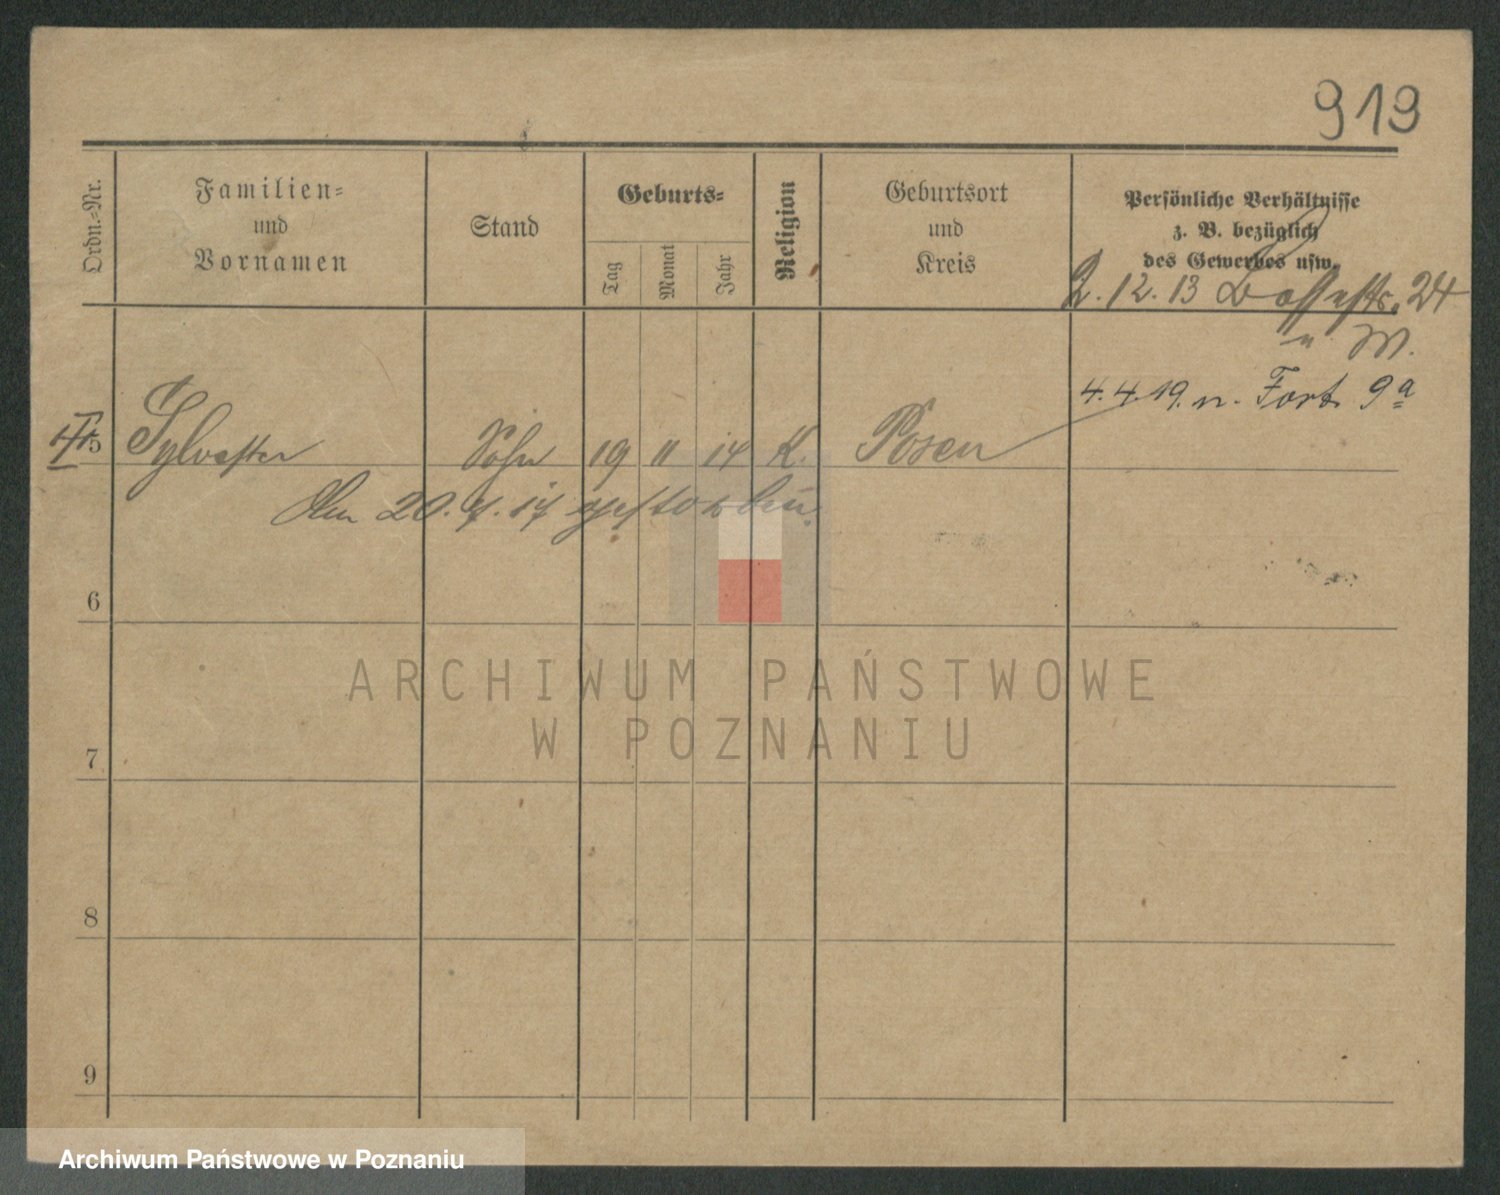 919
Ordn.=Nr.
Familien=
und
Vornamen
Stand
Geburts=
Tag
Monat
Jahr
Religion
Geburtsort
und
Kreis
Persönliche Verhältnisse
z. B. bezüglich
des Gewerbes usw.
2.12.13 24
M.
4.4.19. n. Fort 9a
5 Sylvester Sohn 19 11 14 K. Posen
Am 20. 7. 17 gestorben.
6
7
8
9
ARCHIWUM PAŃSTWOWE
W POZNANIU
Archiwum Państwowe w Poznaniu